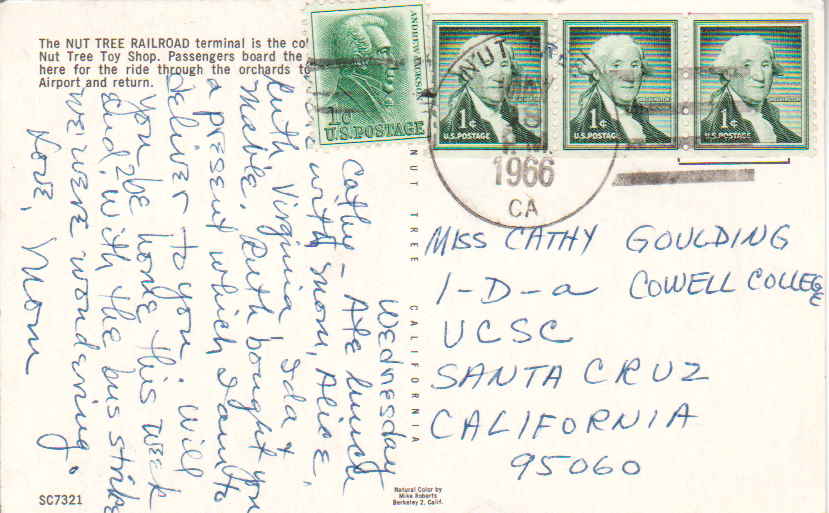 The NUT TREE RAILROAD terminal is the
Nut Tree Toy Shop. Passengers board the
here for the ride through the orchards to
Airport and return.
Wednesday
Cathy – Ate lunch
with mom, Alice,
Ruth, Virginia, Ida &
Mable. Ruth bought you
a present which I am to
deliver to you. Will
you be home this week
end? With the bus strike
we were wondering.
Love, Mom
SC7321
NUT TREE CALIFORNIA
Natural Color by
Mike Roberts
Berkeley 2, Calif.
ANDREW JACKSON
1¢
U.S. POSTAGE
1¢
U.S. POSTAGE
1¢
U.S. POSTAGE
1¢
U.S. POSTAGE
NUT TREE
P.M.
1966
CA
MISS CATHY GOULDING
1-D-a COWELL COLLEGE
UCSC
SANTA CRUZ
CALIFORNIA
95060